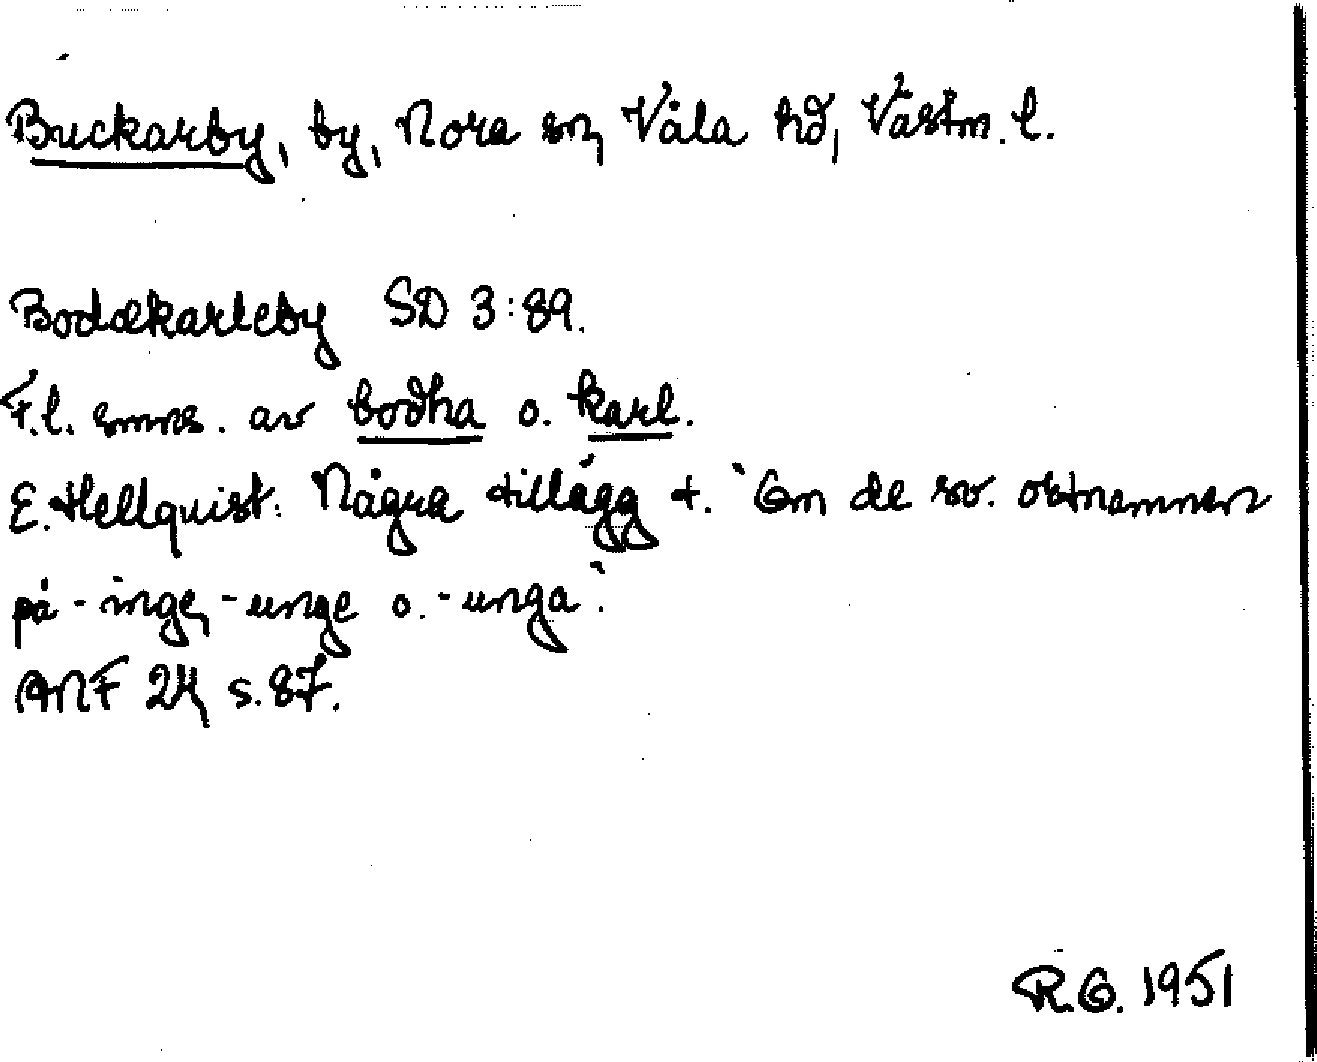 Buckarby, by, Nora sn, Våla hd, Västm. l.
Bodækarleby SD 3:89.
F.l. smns. av bodha o. karl.
E. Hellquist: Några tillägg t. "Om de sv. ortnamnen
på -inge, -unge o. -unga".
ANF 24, s. 87.
R.O. 1951